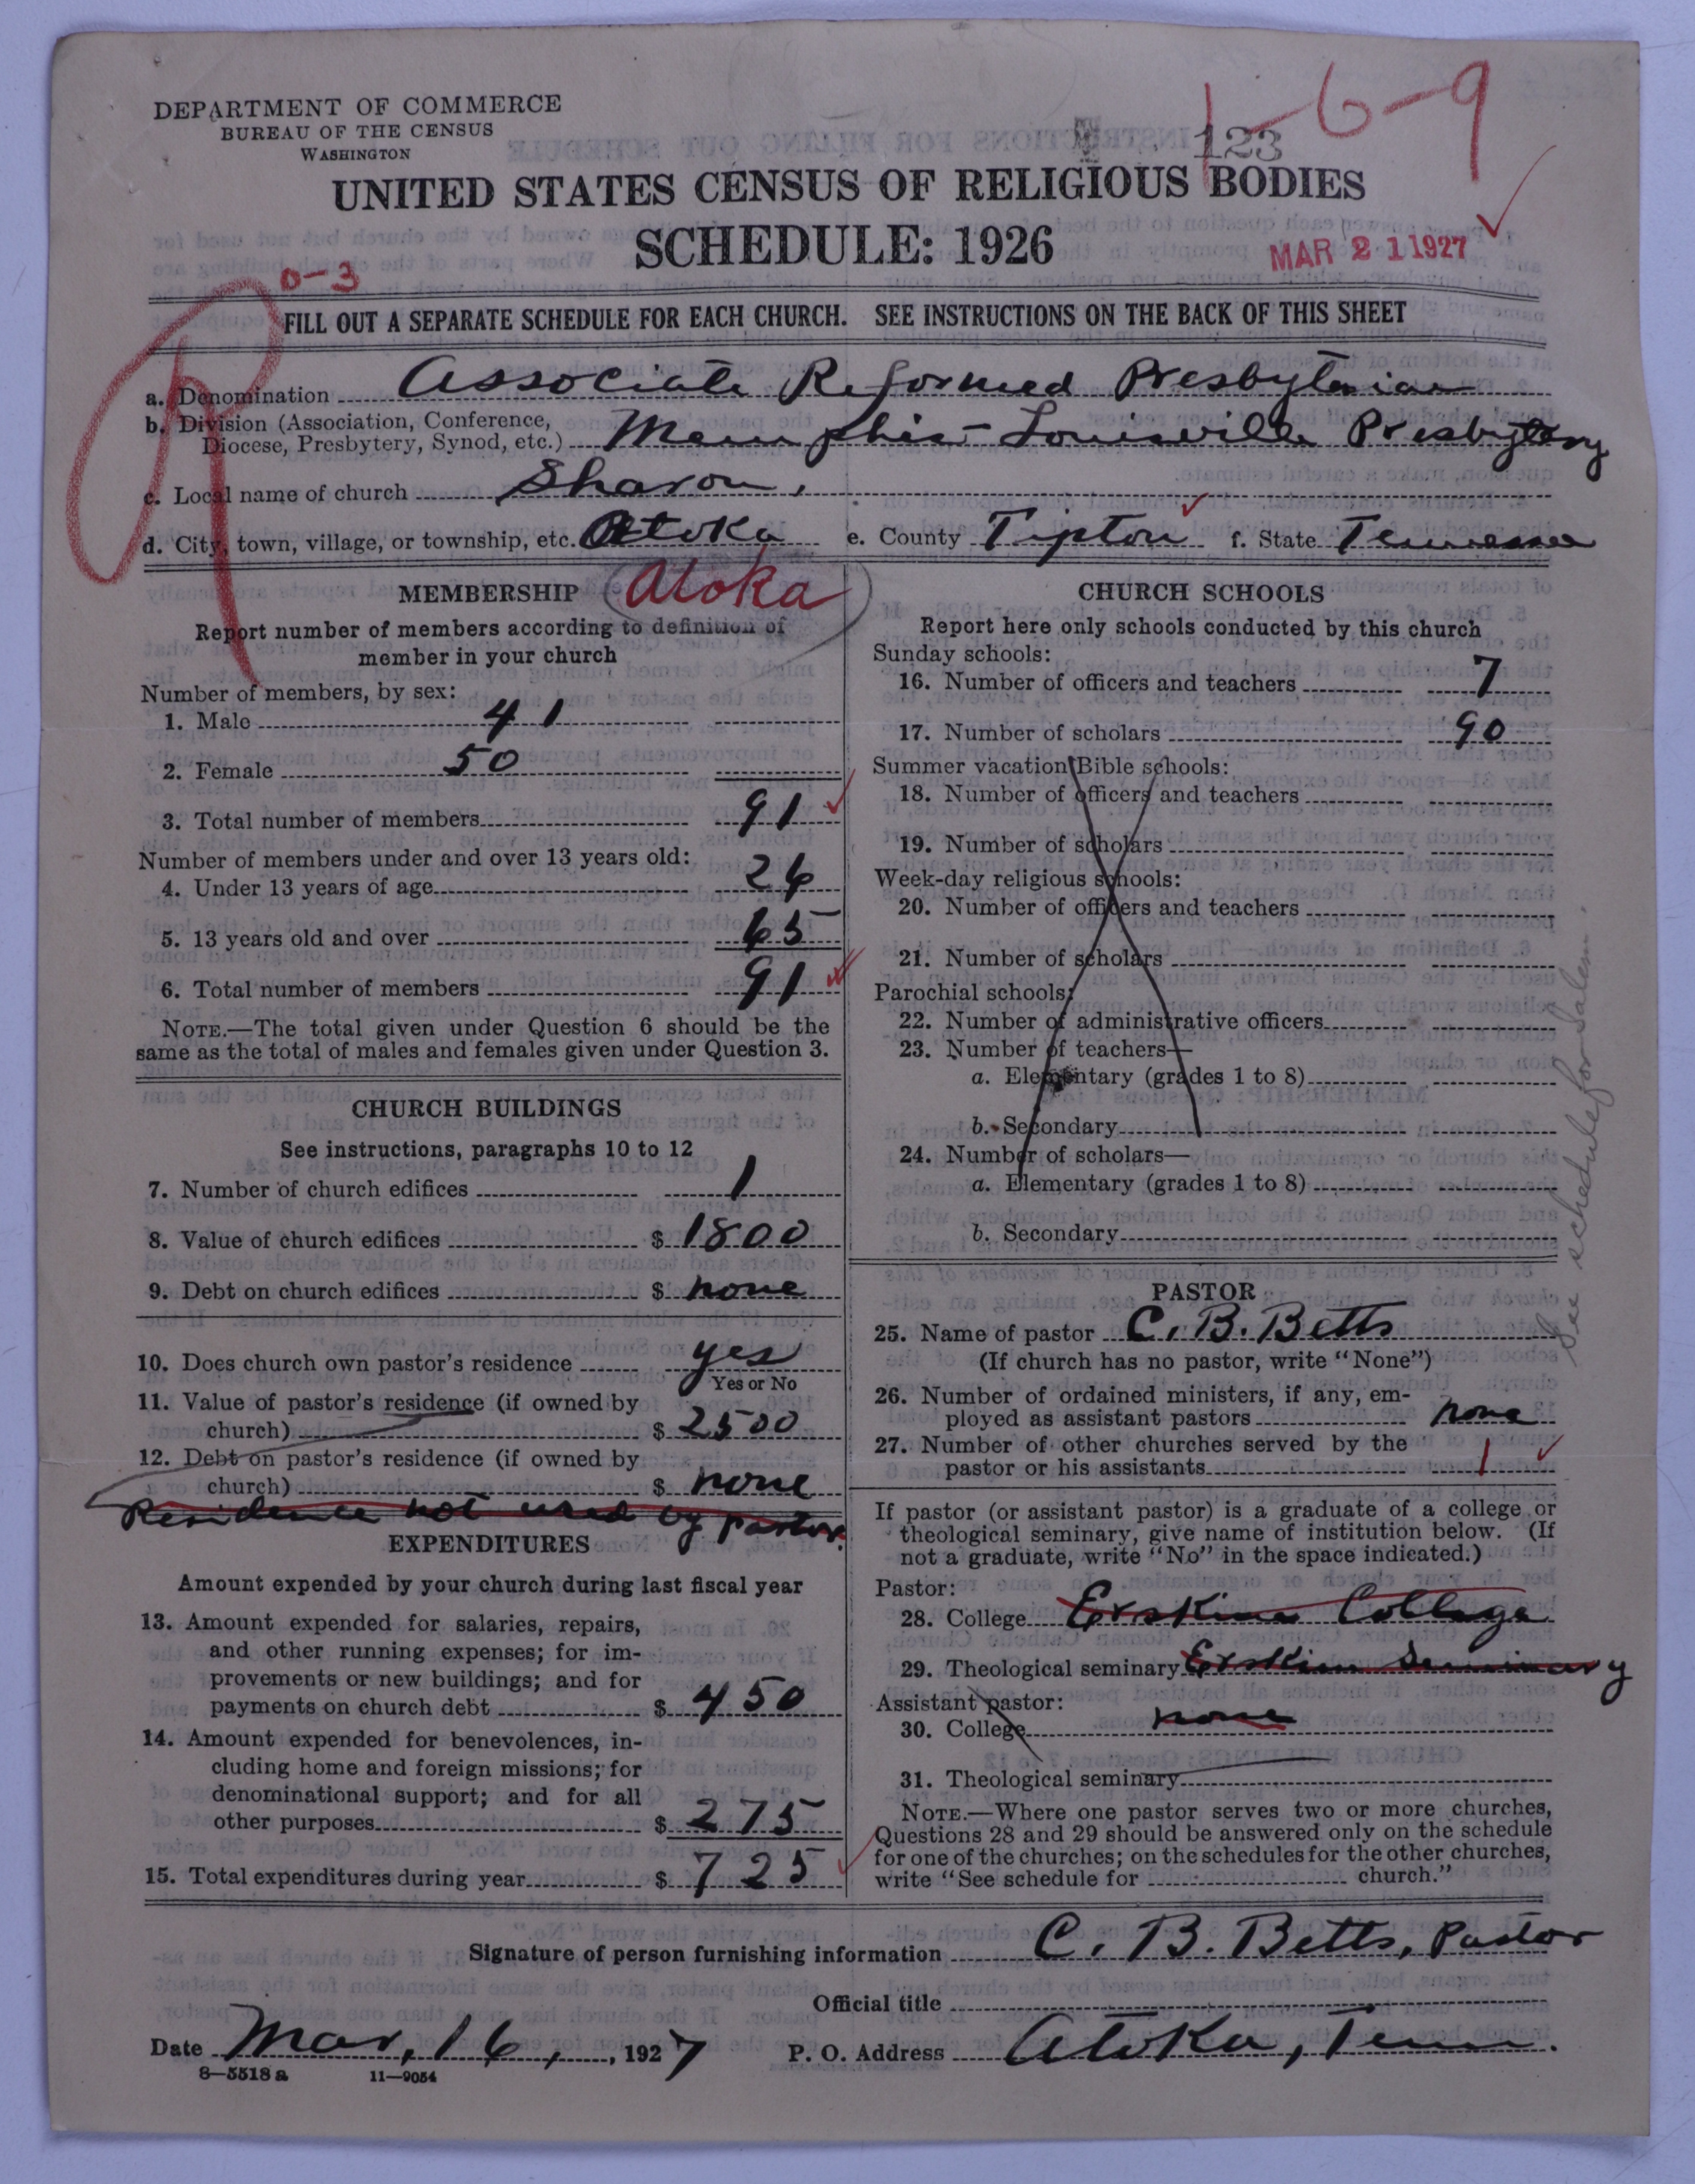 1-6-9
DEPARTMENT OF COMMERCE
BUREAU OF THE CENSUS
WASHINGTON
123
UNITED STATES CENSUS OF RELIGIOUS BODIES
SCHEDULE: 1926
MAR 21 1927
0-3
R
FILL OUT A SEPARATE SCHEDULE FOR EACH CHURCH. SEE INSTRUCTIONS ON THE BACK OF THIS SHEET
a. Denomination Associate Reformed Presbyterian
b. Division (Association, Conference,
Diocese, Presbytery, Synod, etc.) Memphis-Louisville Presbytery
c. Local name of church Sharon,
d. City, town, village, or township, etc. Atoka e. County Tipton f. State Tennessee
MEMBERSHIP (Atoka)
Report number of members according to definition of
member in your church
Number of members, by sex:
1. Male 41
2. Female 50
3. Total number of members 91
Number of members under and over 13 years old:
4. Under 13 years of age 26
5. 13 years old and over 65
6. Total number of members 91
NOTE.—The total given under Question 6 should be the
same as the total of males and females given under Question 3.
CHURCH BUILDINGS
See instructions, paragraphs 10 to 12
7. Number of church edifices 1
8. Value of church edifices $ 1800
9. Debt on church edifices $ none
10. Does church own pastor's residence yes
Yes or No
11. Value of pastor's residence (if owned by
church) $ 2500
12. Debt on pastor's residence (if owned by
church) $ none
Residence not used by pastor.
EXPENDITURES
Amount expended by your church during last fiscal year
13. Amount expended for salaries, repairs,
and other running expenses; for im-
provements or new buildings; and for
payments on church debt $ 450
14. Amount expended for benevolences, in-
cluding home and foreign missions; for
denominational support; and for all
other purposes $ 275
15. Total expenditures during year $ 725
CHURCH SCHOOLS
Report here only schools conducted by this church
Sunday schools:
16. Number of officers and teachers 7
17. Number of scholars 90
Summer vacation Bible schools:
18. Number of officers and teachers
19. Number of scholars
Week-day religious schools:
20. Number of officers and teachers
21. Number of scholars
Parochial schools:
22. Number of administrative officers
23. Number of teachers—
a. Elementary (grades 1 to 8)
b. Secondary
24. Number of scholars—
a. Elementary (grades 1 to 8)
b. Secondary
See schedule for Salem.
PASTOR
25. Name of pastor C. B. Betts
(If church has no pastor, write "None")
26. Number of ordained ministers, if any, em-
ployed as assistant pastors none
27. Number of other churches served by the
pastor or his assistants 1
If pastor (or assistant pastor) is a graduate of a college or
theological seminary, give name of institution below. (If
not a graduate, write "No" in the space indicated.)
Pastor:
28. College Erskine College
29. Theological seminary Erskine Seminary
Assistant pastor:
30. College none
31. Theological seminary
NOTE.—Where one pastor serves two or more churches,
Questions 28 and 29 should be answered only on the schedule
for one of the churches; on the schedules for the other churches,
write "See schedule for church."
Signature of person furnishing information C. B. Betts, Pastor
Official title
Date Mar, 16, 1927 P. O. Address Atoka, Tenn.
8-5518 a 11-9054